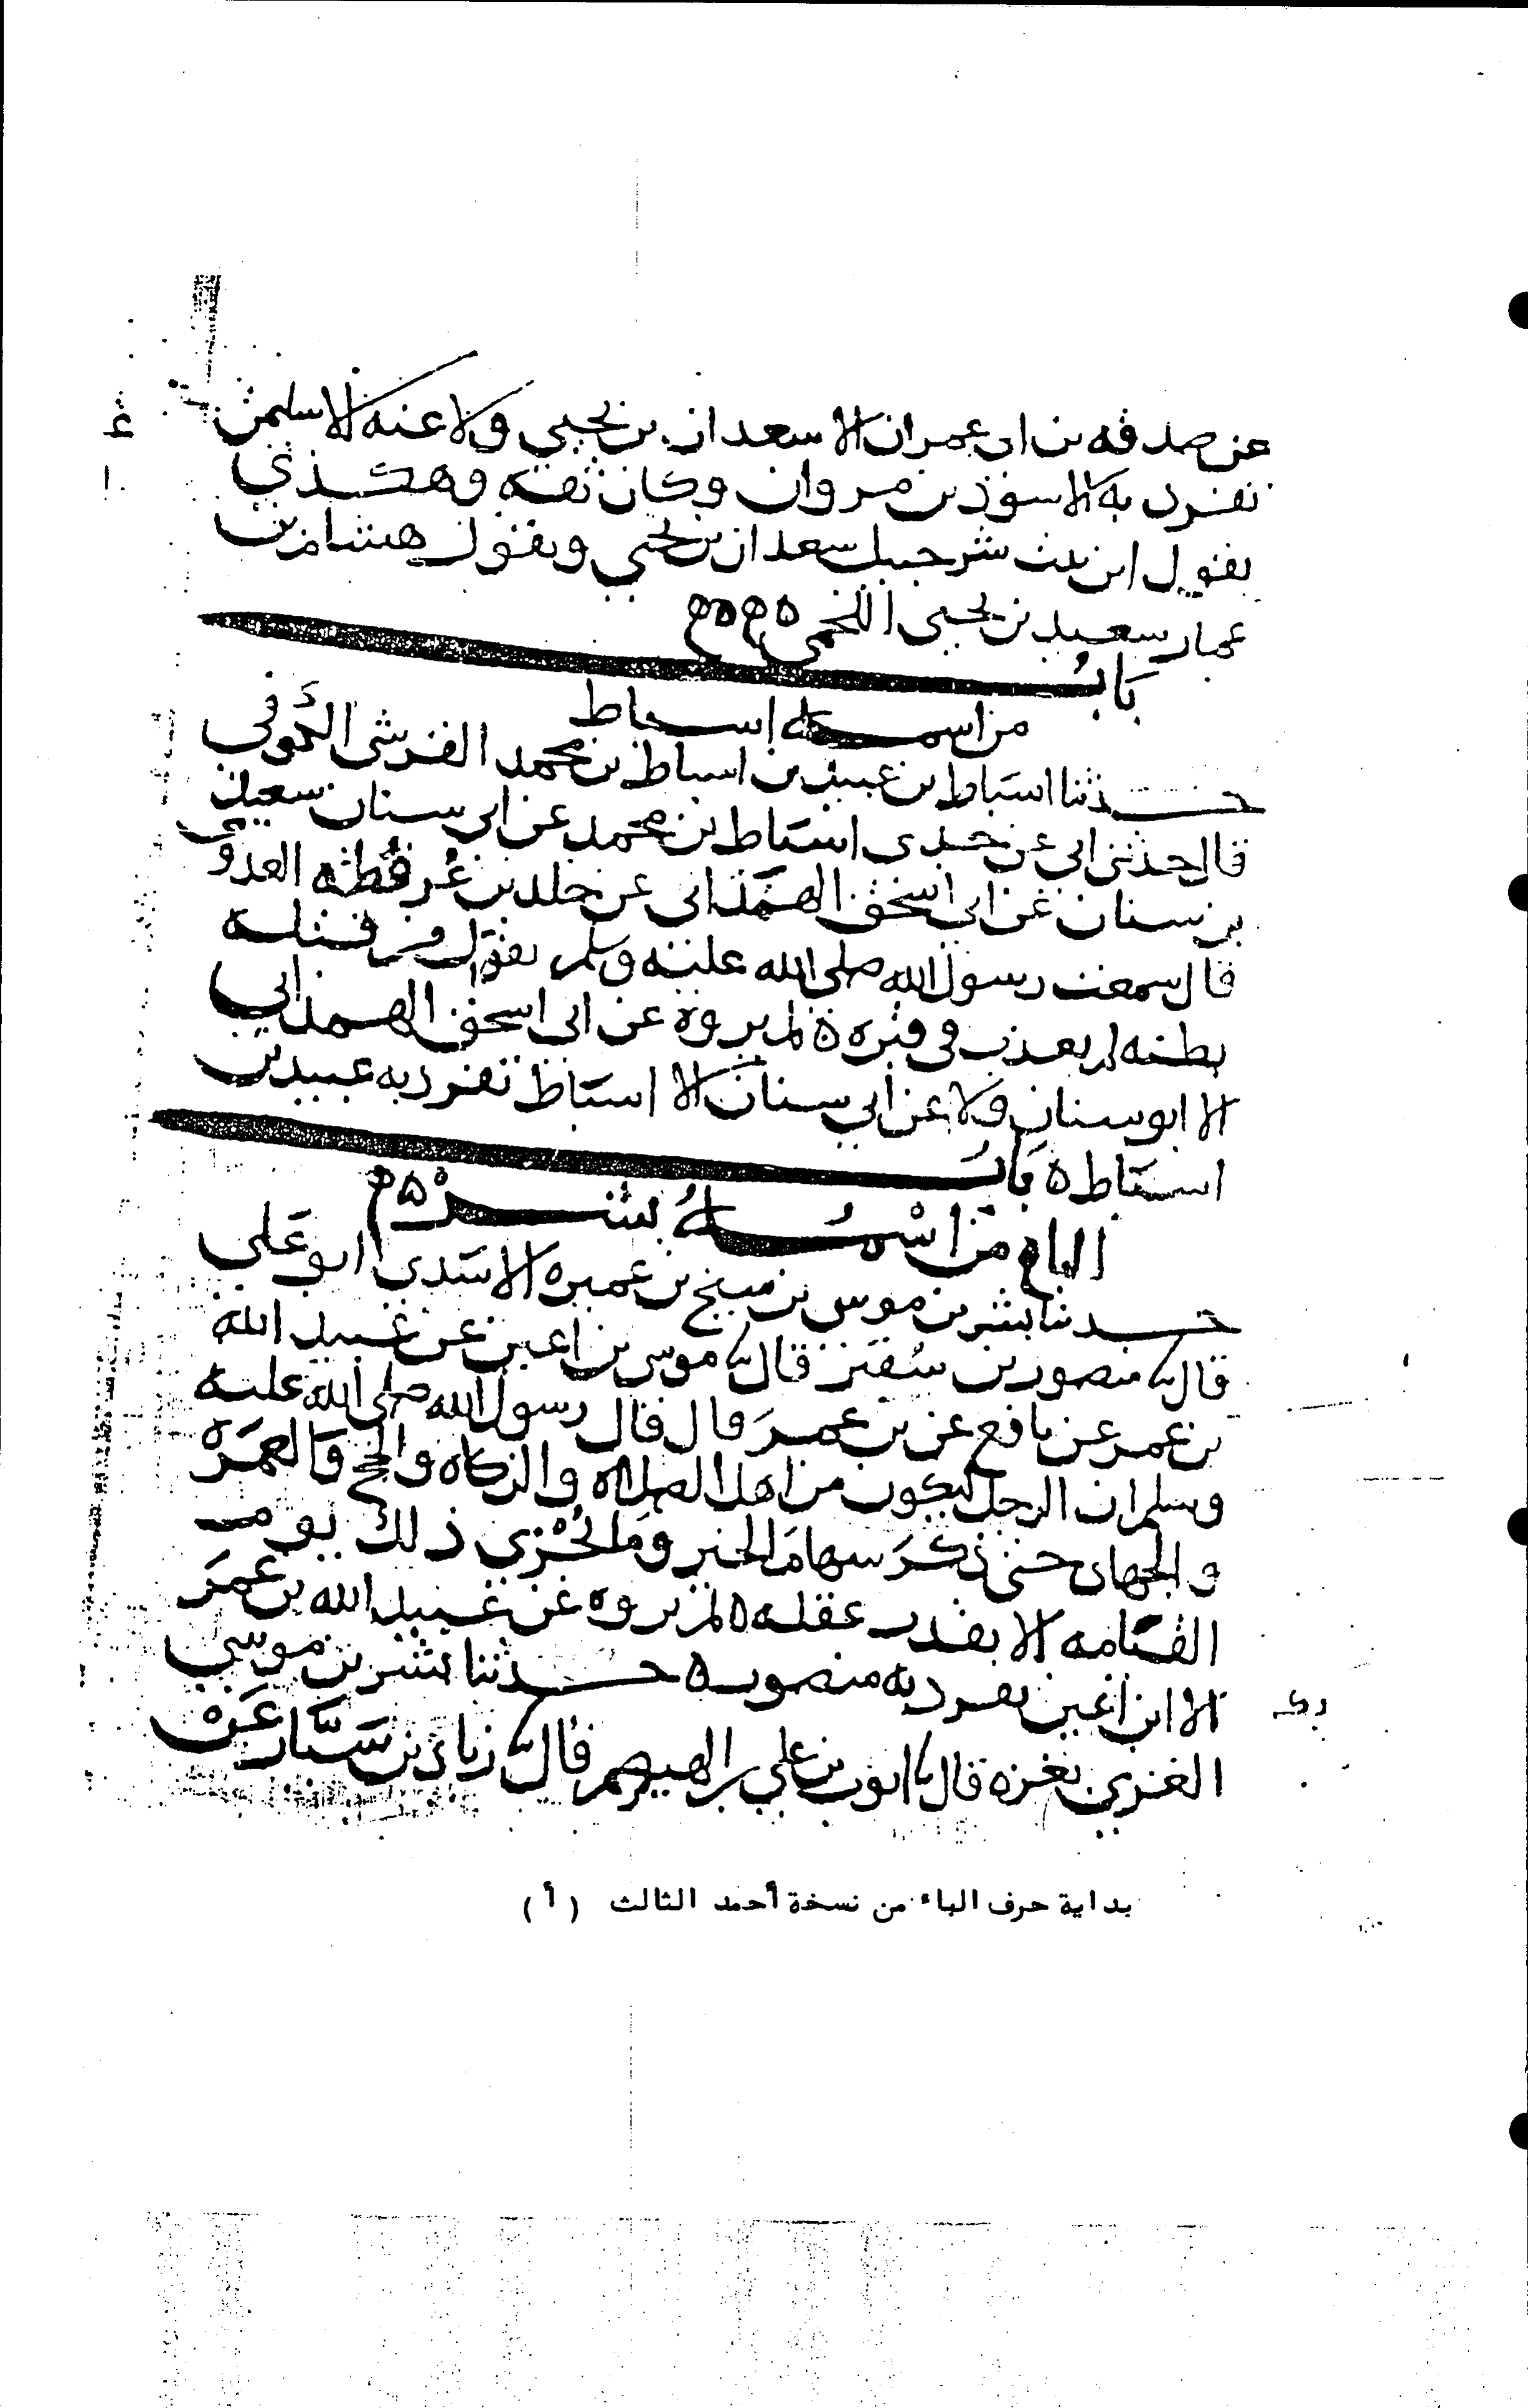 عن صدقه بن ابي عمران الا سعدان بن يحيي ولا عنه الا سليمن
تفرد به الاسود بن مروان وكان ثقه وهكذي
يقول ابن بنت شرحبيل سعدان بن يحيي ويقول هشام بن
عمار سعيد بن يحيى اللخمي
باب
من اسمه اسباط
حدثنا اسباط بن عبيد بن اسباط بن محمد القرشي الكوفي
قال حدثني ابي عن جدي اسباط بن محمد عن ابي سنان سعيد
بن سنان عن ابي اسحق الهمداني عن خلد بن عرفطه العدوي
قال سمعت رسول الله صلى الله عليه وسلم يقول من قتله
بطنه لم يعذب في قبره ه لم يروه عن ابي اسحق الهمداني
الا ابو سنان ولا عن ابي سنان الا اسباط تفرد به عبيد بن
اسباط ه باب
الباء من اسمه بشر
حدثنا بشر بن موسى بن شيخ بن عميره الاسدي ابو علي
قال نا منصور بن سقير قال نا موسى بن اعين عن عبيد الله
بن عمر عن نافع عن بن عمر قال قال رسول الله صلى الله عليه
وسلم ان الرجل ليكون من اهل الصلاه والزكاه والحج والعمره
والجهاد حتى ذكر سهام الخير وما يجزي ذلك يوم
القيامه الا بقدر عقله ه لم يروه عن عبيد الله بن عمر
الا ابن اعين تفرد به منصور ه حدثنا بشر بن موسي
الغزي بغزه قال نا ايوب بن علي بن الهيصم قال نا زياد بن سيار عن
بداية حرف الباء من نسخة أحمد الثالث (أ)